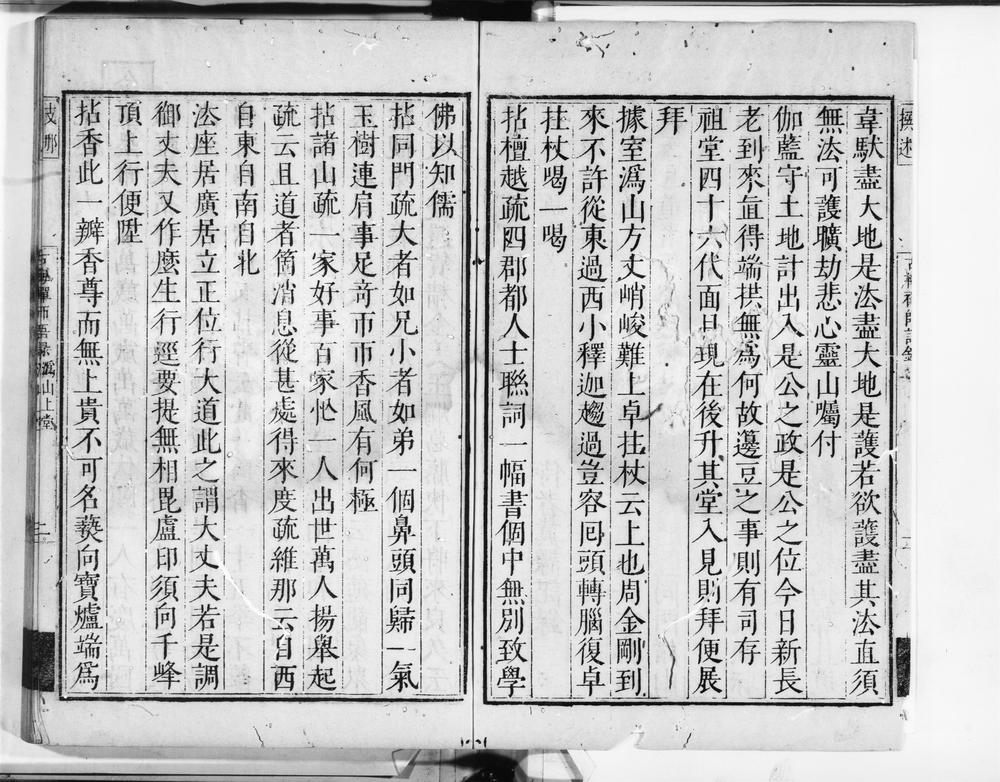 韋馱盡大地是法盡大地是護若欲護盡其法直須
無法可護曠劫悲心靈山囑付
伽藍守土地計出入是公之政是公之位今日新長
老到來直得端拱無為何故籩豆之事則有司存
祖堂四十六代面目現在後升其堂入見則拜便展
拜
據室溈山方丈峭峻難上卓拄杖云上也周金剛到
來不許從東過西小釋迦趨過豈容囘頭轉腦復卓
拄杖喝一喝
拈檀越疏四郡都人士聯詞一幅書個中無別致學
佛以知儒
拈同門疏大者如兄小者如弟一個鼻頭同歸一氣
玉樹連肩事足奇帀帀香風有何極
拈諸山疏一家好事百家忙一人出世萬人揚舉起
疏云且道者箇消息從甚處得來度疏維那云自西
自東自南自北
法座居廣居立正位行大道此之謂大丈夫若是調
御丈夫又作麼生行逕要提無相毘盧印須向千峰
頂上行便陞
拈香此一瓣香尊而無上貴不可名爇向寶爐端為